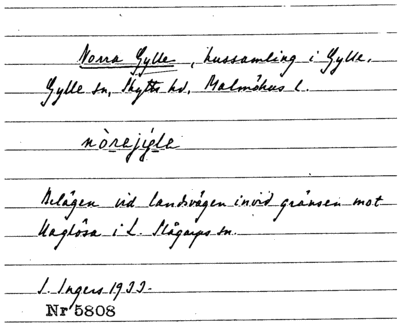 Norra Gylle, hussamling i Gylle,
Gylle sn, Skytts hd, Malmöhus l.
nòrejýle
Belägen vid landsvägen invid gränsen mot
Haglösa i L. Slågarps sn.
I. Ingers 1933.
Nr 5808